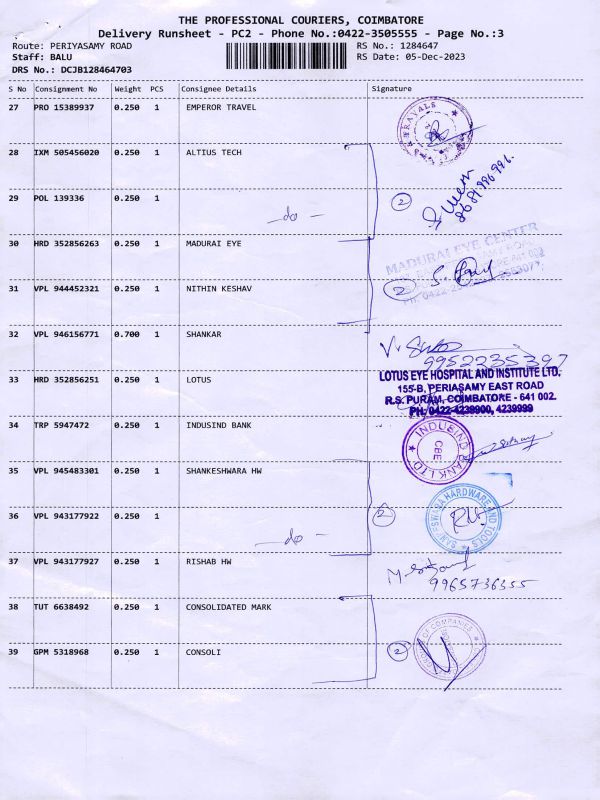 THE PROFESSIONAL COURIERS, COIMBATORE
Delivery Runsheet - PC2 - Phone No.:0422-3505555 - Page No.:3
Route: PERIYASAMY ROAD RS No.: 1284647
Staff: BALU RS Date: 05-Dec-2023
DRS No.: DCJB128464703
S No Consignment No Weight PCS Consignee Details Signature
27 PRO 15389937 0.250 1 EMPEROR TRAVEL
28 IXM 505456020 0.250 1 ALTIUS TECH
29 POL 139336 0.250 1
-do- 2
8681996996.
30 HRD 352856263 0.250 1 MADURAI EYE
MADURAI EYE CENTER
31 VPL 944452321 0.250 1 NITHIN KESHAV 2
32 VPL 946156771 0.700 1 SHANKAR
9952235397
33 HRD 352856251 0.250 1 LOTUS
LOTUS EYE HOSPITAL AND INSTITUTE LTD.
155-B, PERIASAMY EAST ROAD
R.S. PURAM, COIMBATORE - 641 002.
PH: 0422-4239900, 4239999
34 TRP 5947472 0.250 1 INDUSIND BANK
INDUSIND BANK LTD
CBE
35 VPL 945483301 0.250 1 SHANKESHWARA HW
HARDWARE AND TOOLS
36 VPL 943177922 0.250 1 2
-do-
37 VPL 943177927 0.250 1 RISHAB HW
9965736555
38 TUT 6638492 0.250 1 CONSOLIDATED MARK
GROUP OF COMPANIES
39 GPM 5318968 0.250 1 CONSOLI 2